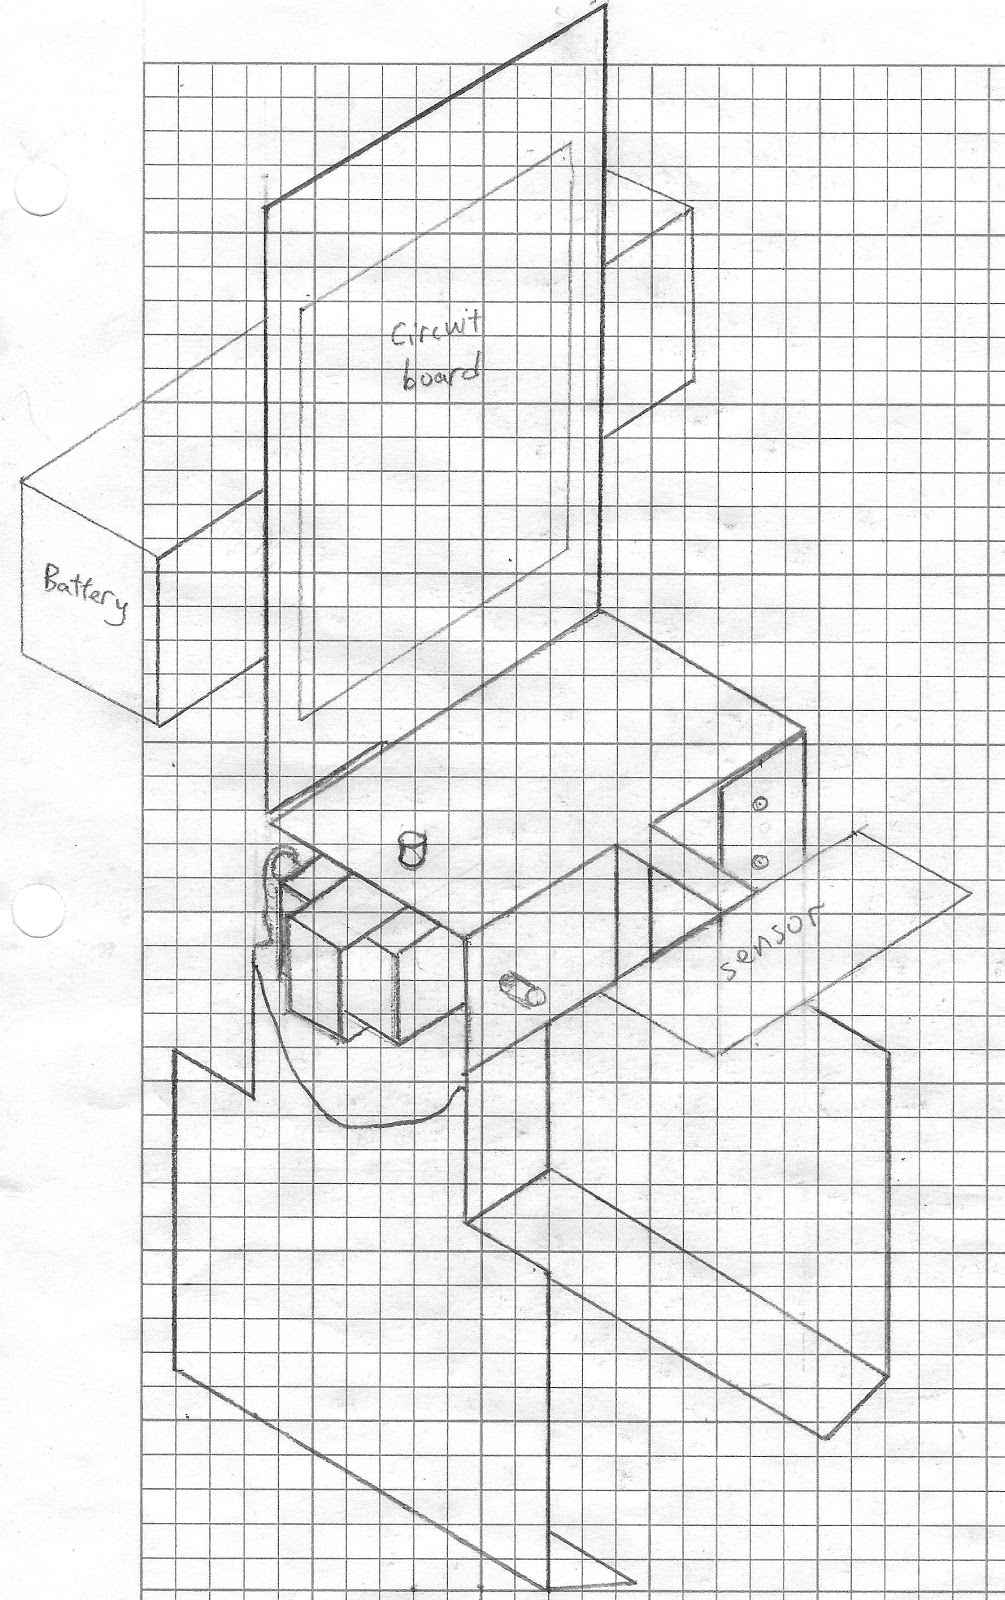 Circuit
board
Battery
sensor